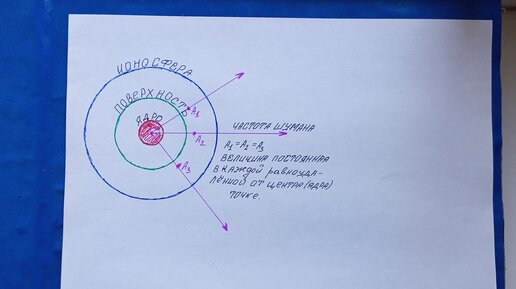 ИОНОСФЕРА
ПОВЕРХНОСТЬ
ЯДРО
A1
A2
A3
ЧАСТОТА ШУМАНА
A1 = A2 = A3
ВЕЛИЧИНА ПОСТОЯННАЯ
В КАЖДОЙ РАВНОУДА-
ЛЁННОЙ ОТ ЦЕНТРА (ЯДРА)
ТОЧКЕ.